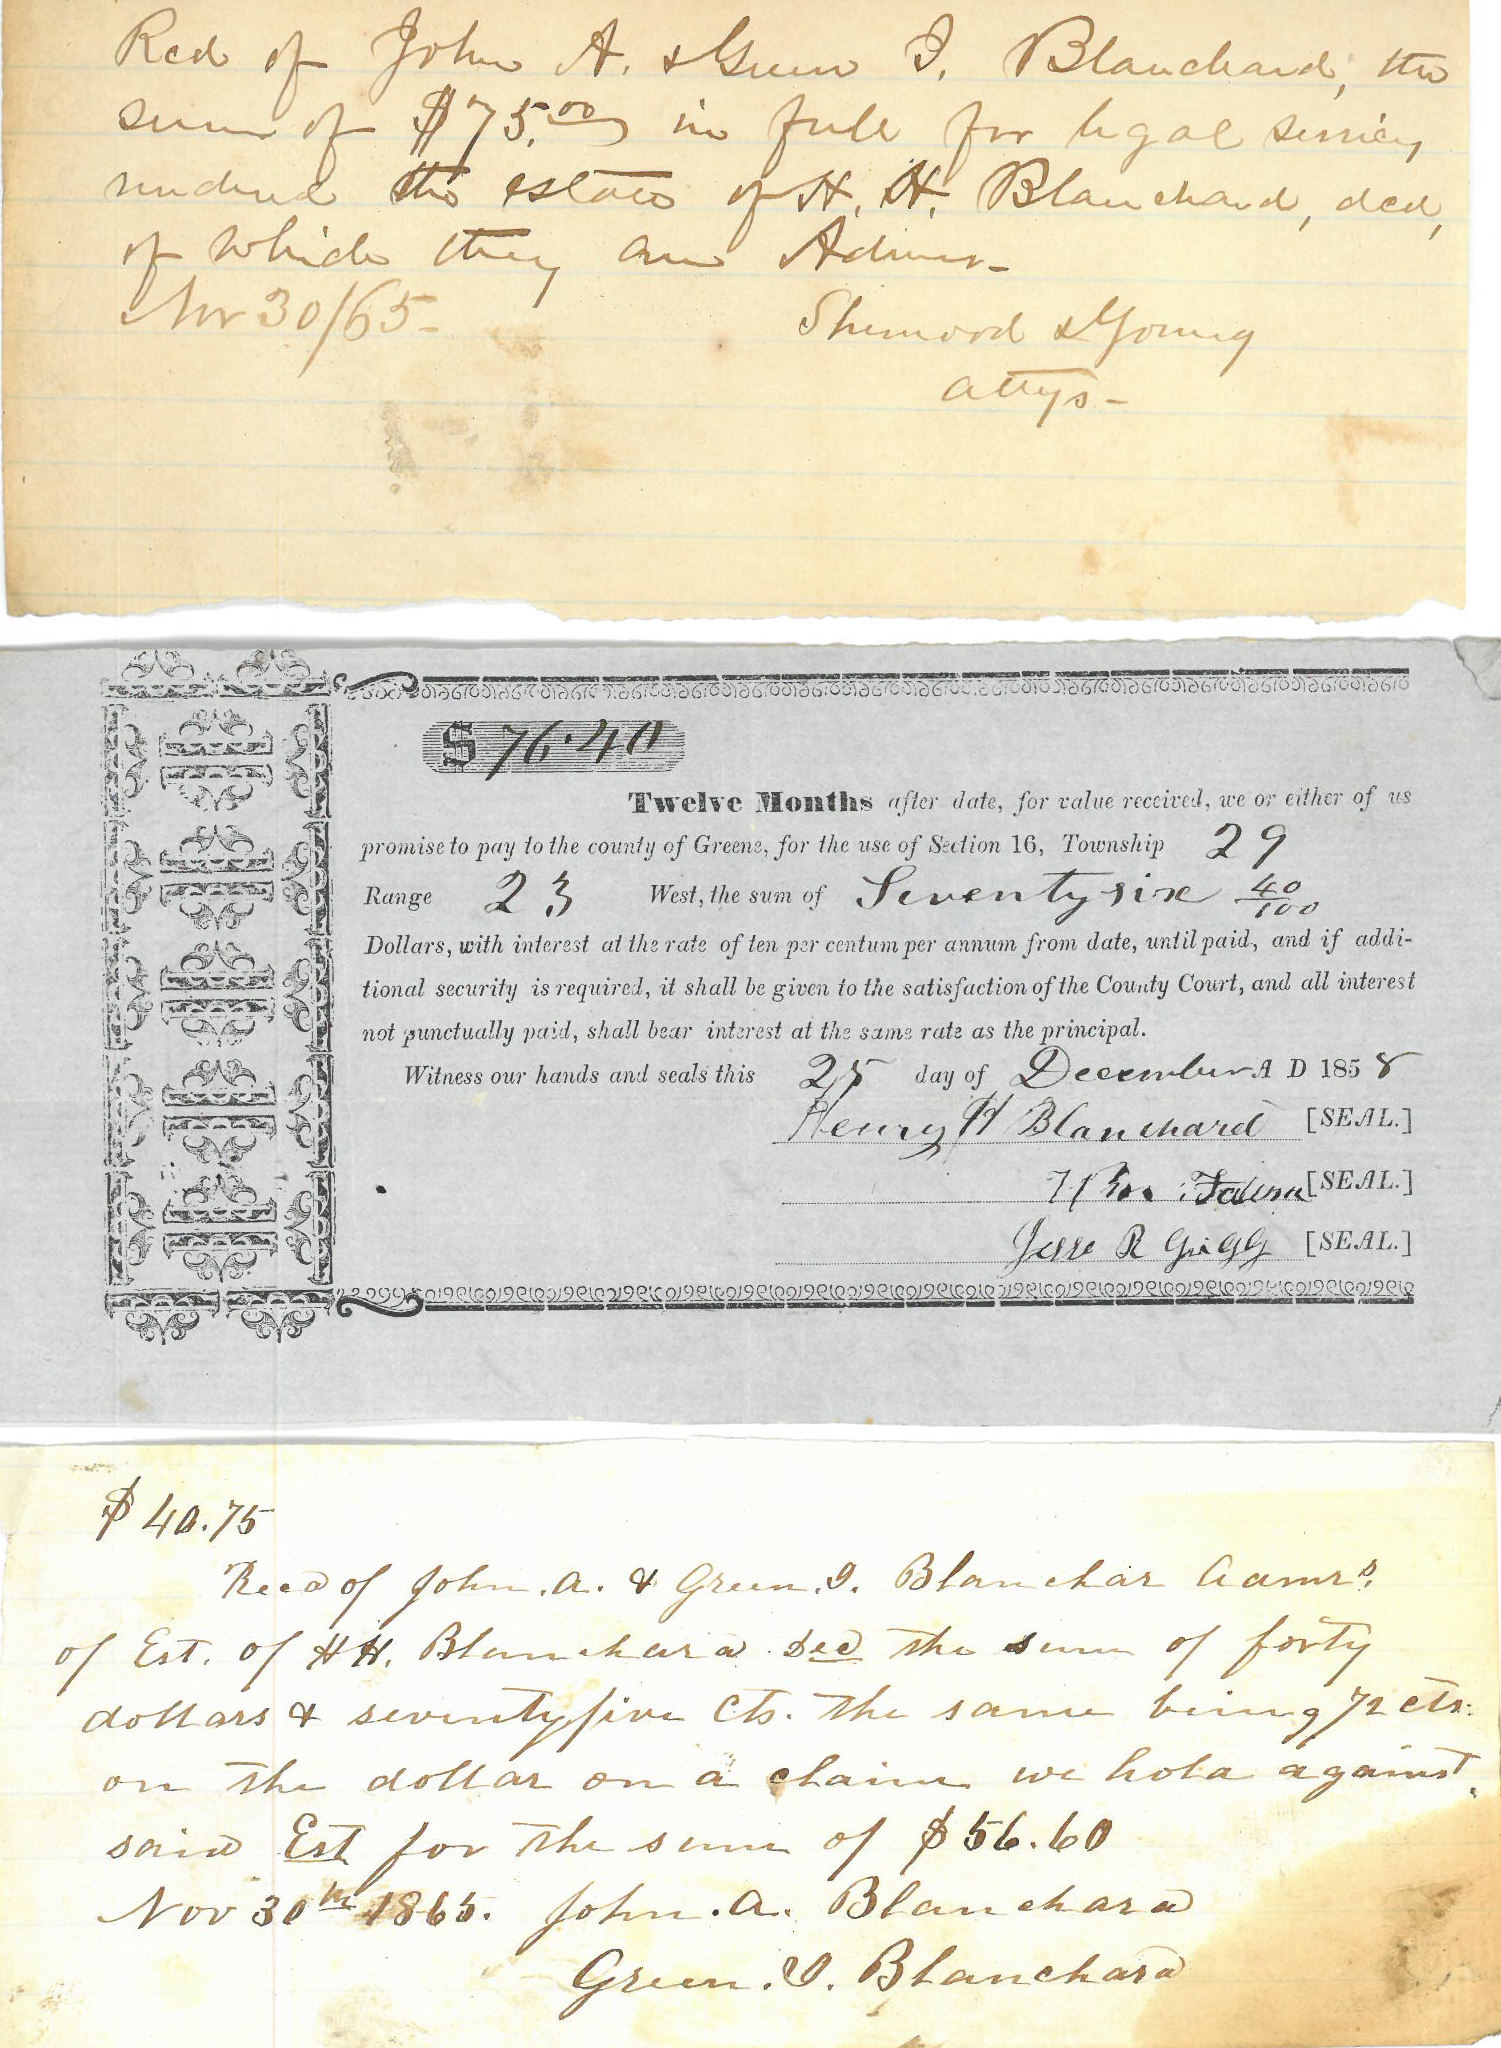 Recd of John A. & Green I. Blanchard, the
sum of $75.00 in full for legal services
rendered the estate of H. H. Blanchard, decd,
of which they are Admrs-
Nov 30/65-
Sherwood & Young
attys-
$ 76.40
Twelve Months after date, for value received, we or either of us
promise to pay to the county of Greene, for the use of Section 16, Township 29
Range 23 West, the sum of Seventy six 40/100
Dollars, with interest at the rate of ten per centum per annum from date, until paid, and if addi-
tional security is required, it shall be given to the satisfaction of the County Court, and all interest
not punctually paid, shall bear interest at the same rate as the principal.
Witness our hands and seals this 25 day of December A D 1858
Henry H Blanchard [SEAL.]
[SEAL.]
Jesse R Grigg [SEAL.]
$ 40.75
Recd of John. A. & Green. I. Blanchard Admrs.
of Est. of H H. Blanchard Decd the sum of forty
dollars & seventyfive Cts. the same being 72 cts.
on the dollar on a claim we hold against
said Est for the sum of $56.60
Nov 30th 1865. John. A. Blanchard
Green. I. Blanchard